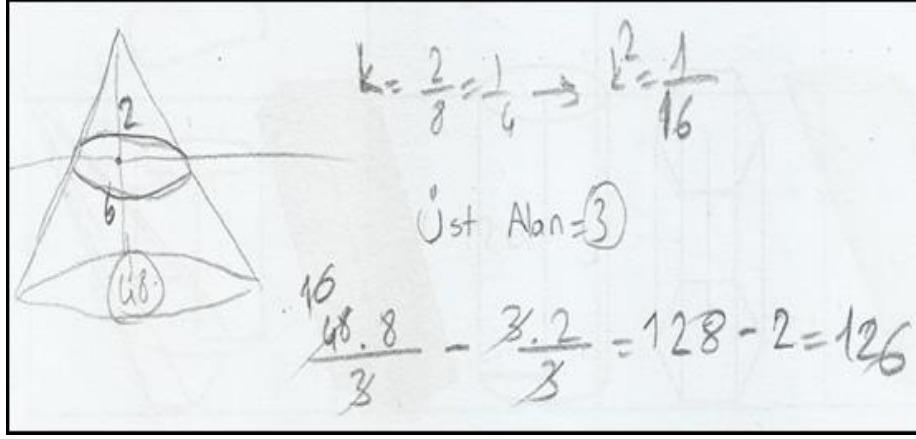 2
6
48
k = 2/8 = 1/4 → k² = 1/16
Üst Alan = 3
16
48.8/3 - 3.2/3 = 128 - 2 = 126